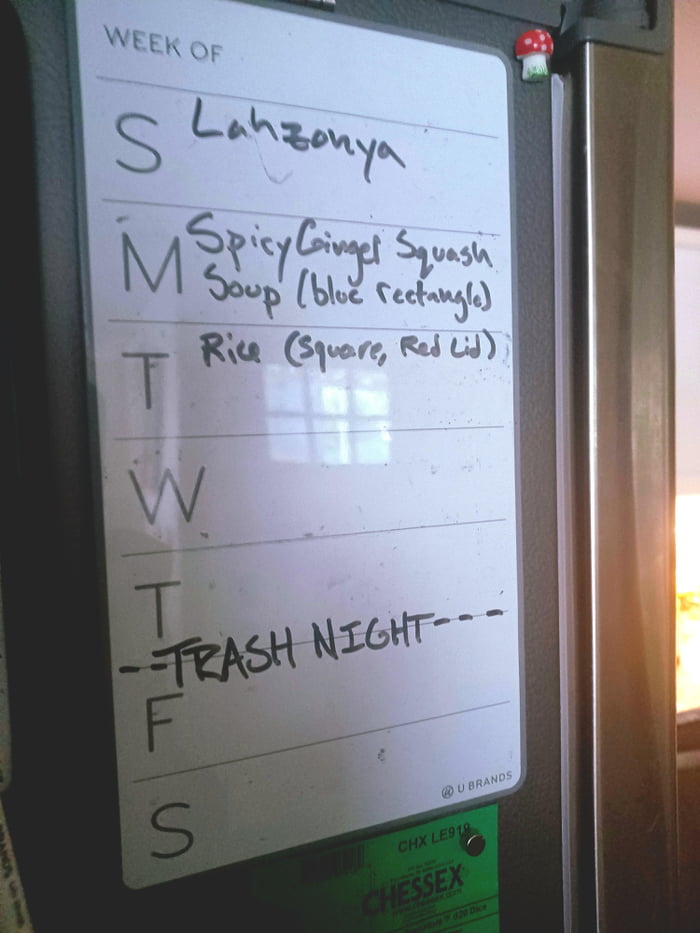 WEEK OF
S Lahzonya
M Spicy Ginger Squash
Soup (blue rectangle)
T Rice (Square, Red Lid)
W
T
---TRASH NIGHT----
F
S
U BRANDS
CHX LE919
CHESSEX